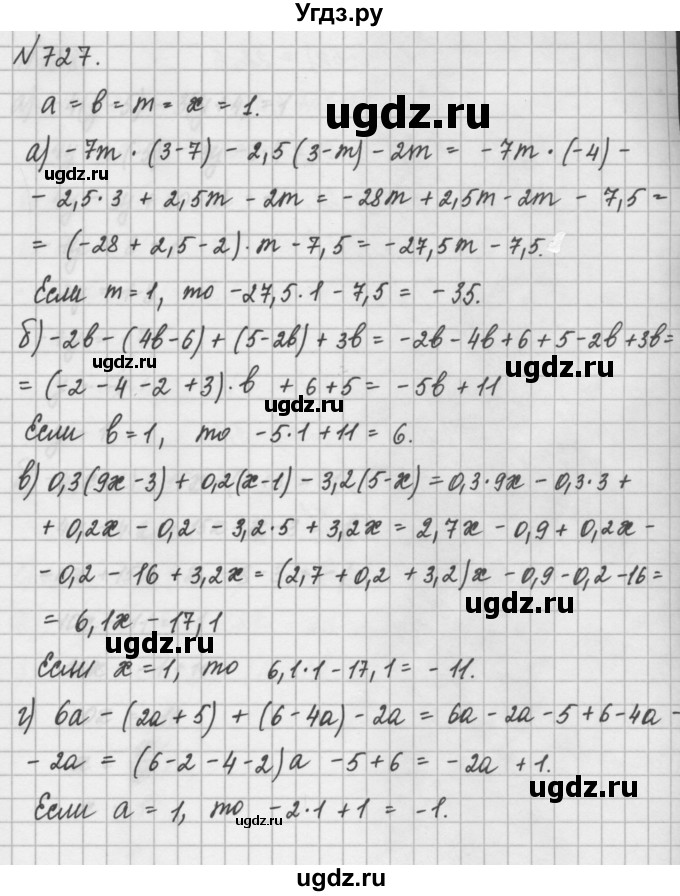 Угдз.ру
N 727.
a = b = m = x = 1.
ugdz.ru
а) - 7m · (3-7) - 2,5(3-m) - 2m = - 7m · (-4) -
- 2,5·3 + 2,5m - 2m = -28m + 2,5m - 2m - 7,5 =
= (-28 + 2,5 - 2)·m - 7,5 = -27,5m - 7,5.
Если m = 1, то -27,5·1 - 7,5 = -35.
б) -2b - (4b-6) + (5-2b) + 3b = -2b - 4b + 6 + 5 - 2b + 3b =
ugdz.ru
ugdz.ru
= (-2 - 4 - 2 + 3)·b + 6 + 5 = -5b + 11
ugdz.ru
Если b = 1, то -5·1 + 11 = 6.
в) 0,3(9x-3) + 0,2(x-1) - 3,2(5-x) = 0,3·9x - 0,3·3 +
+ 0,2x - 0,2 - 3,2·5 + 3,2x = 2,7x - 0,9 + 0,2x -
- 0,2 - 16 + 3,2x = (2,7 + 0,2 + 3,2)x - 0,9 - 0,2 - 16 =
ugdz.ru
= 6,1x - 17,1
Если x = 1, то 6,1·1 - 17,1 = -11.
г) 6a - (2a+5) + (6-4a) - 2a = 6a - 2a - 5 + 6 - 4a -
- 2a = (6-2-4-2)a - 5 + 6 = -2a + 1.
ugdz.ru
Если a = 1, то -2·1 + 1 = -1.
ugdz.ru
ugdz.ru